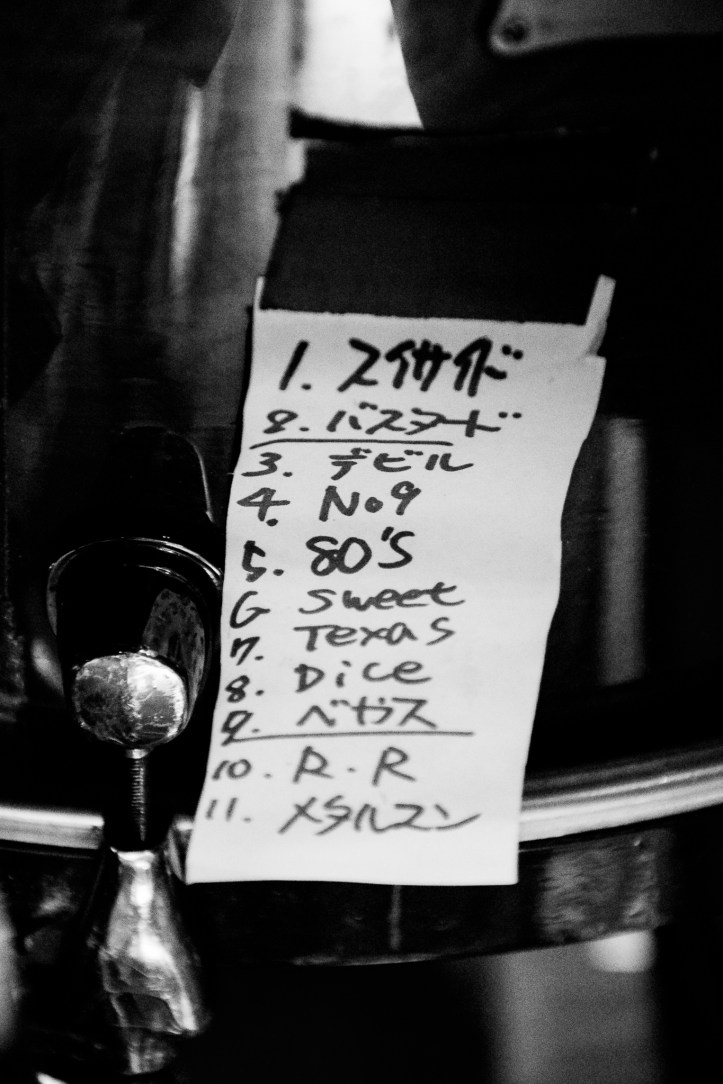 1. スイサイド
2. バスタード
3. デビル
4. No9
5. 80'S
6 Sweet
7. Texas
8. Dice
9. ベガス
10. R.R
11. メタルマン